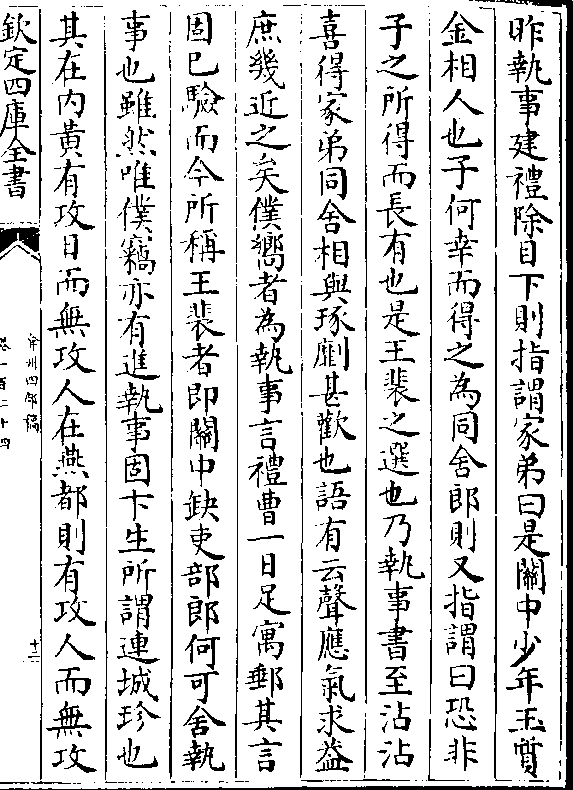 昨執事建禮除目下則指謂家弟曰是關中少年玉質
金相人也子何幸而得之為同舍郎則又指謂曰恐非
子之所得而長有也是王裴之選也乃執事書至沾沾
喜得家弟同舍相與琢劘甚歡也語有云聲應氣求益
庶幾近之矣僕嚮者為執事言禮曹一日足寓郵其言
固已驗而今所稱王裴者即關中缺吏部郎何可舍執
事也雖然唯僕竊亦有進執事固卞生所謂連城珍也
其在内黃有攻日而無攻人在燕都則有攻人而無攻
欽定四庫全書
弇州四部稿
卷一百二十四
十三